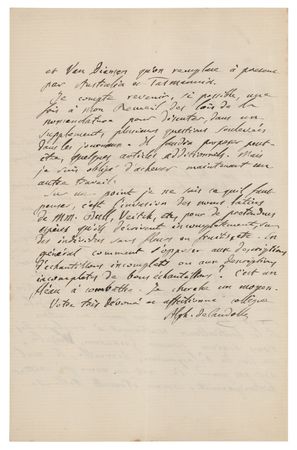 et Van Diemen qu'on remplace à présent
par Australia et Tasmania.
Je compte revenir, si possible, une
fois à mon Recueil des lois de la
nomenclature pour discuter, dans un
supplément, plusieurs questions soulevées
dans les journaux. Il faudra proposer peut
être quelques articles additionnels. Mais
je suis obligé d'achever maintenant un
autre travail.
Sur un point je ne sais ce qu'il faut
penser, c'est l'invasion des noms latins
de MM. Bull, Veitch, etc, pour de prétendues
espèces qu'ils décrivent incomplètement, sur
des individus sans fleurs ou fruits etc. En
général comment s'opposer aux descriptions
d'échantillons incomplets ou aux descriptions
incomplètes de bons échantillons? C'est un
fléau à combattre. Je cherche un moyen.
Votre très dévoué et affectionné collègue
Alph. de Candolle